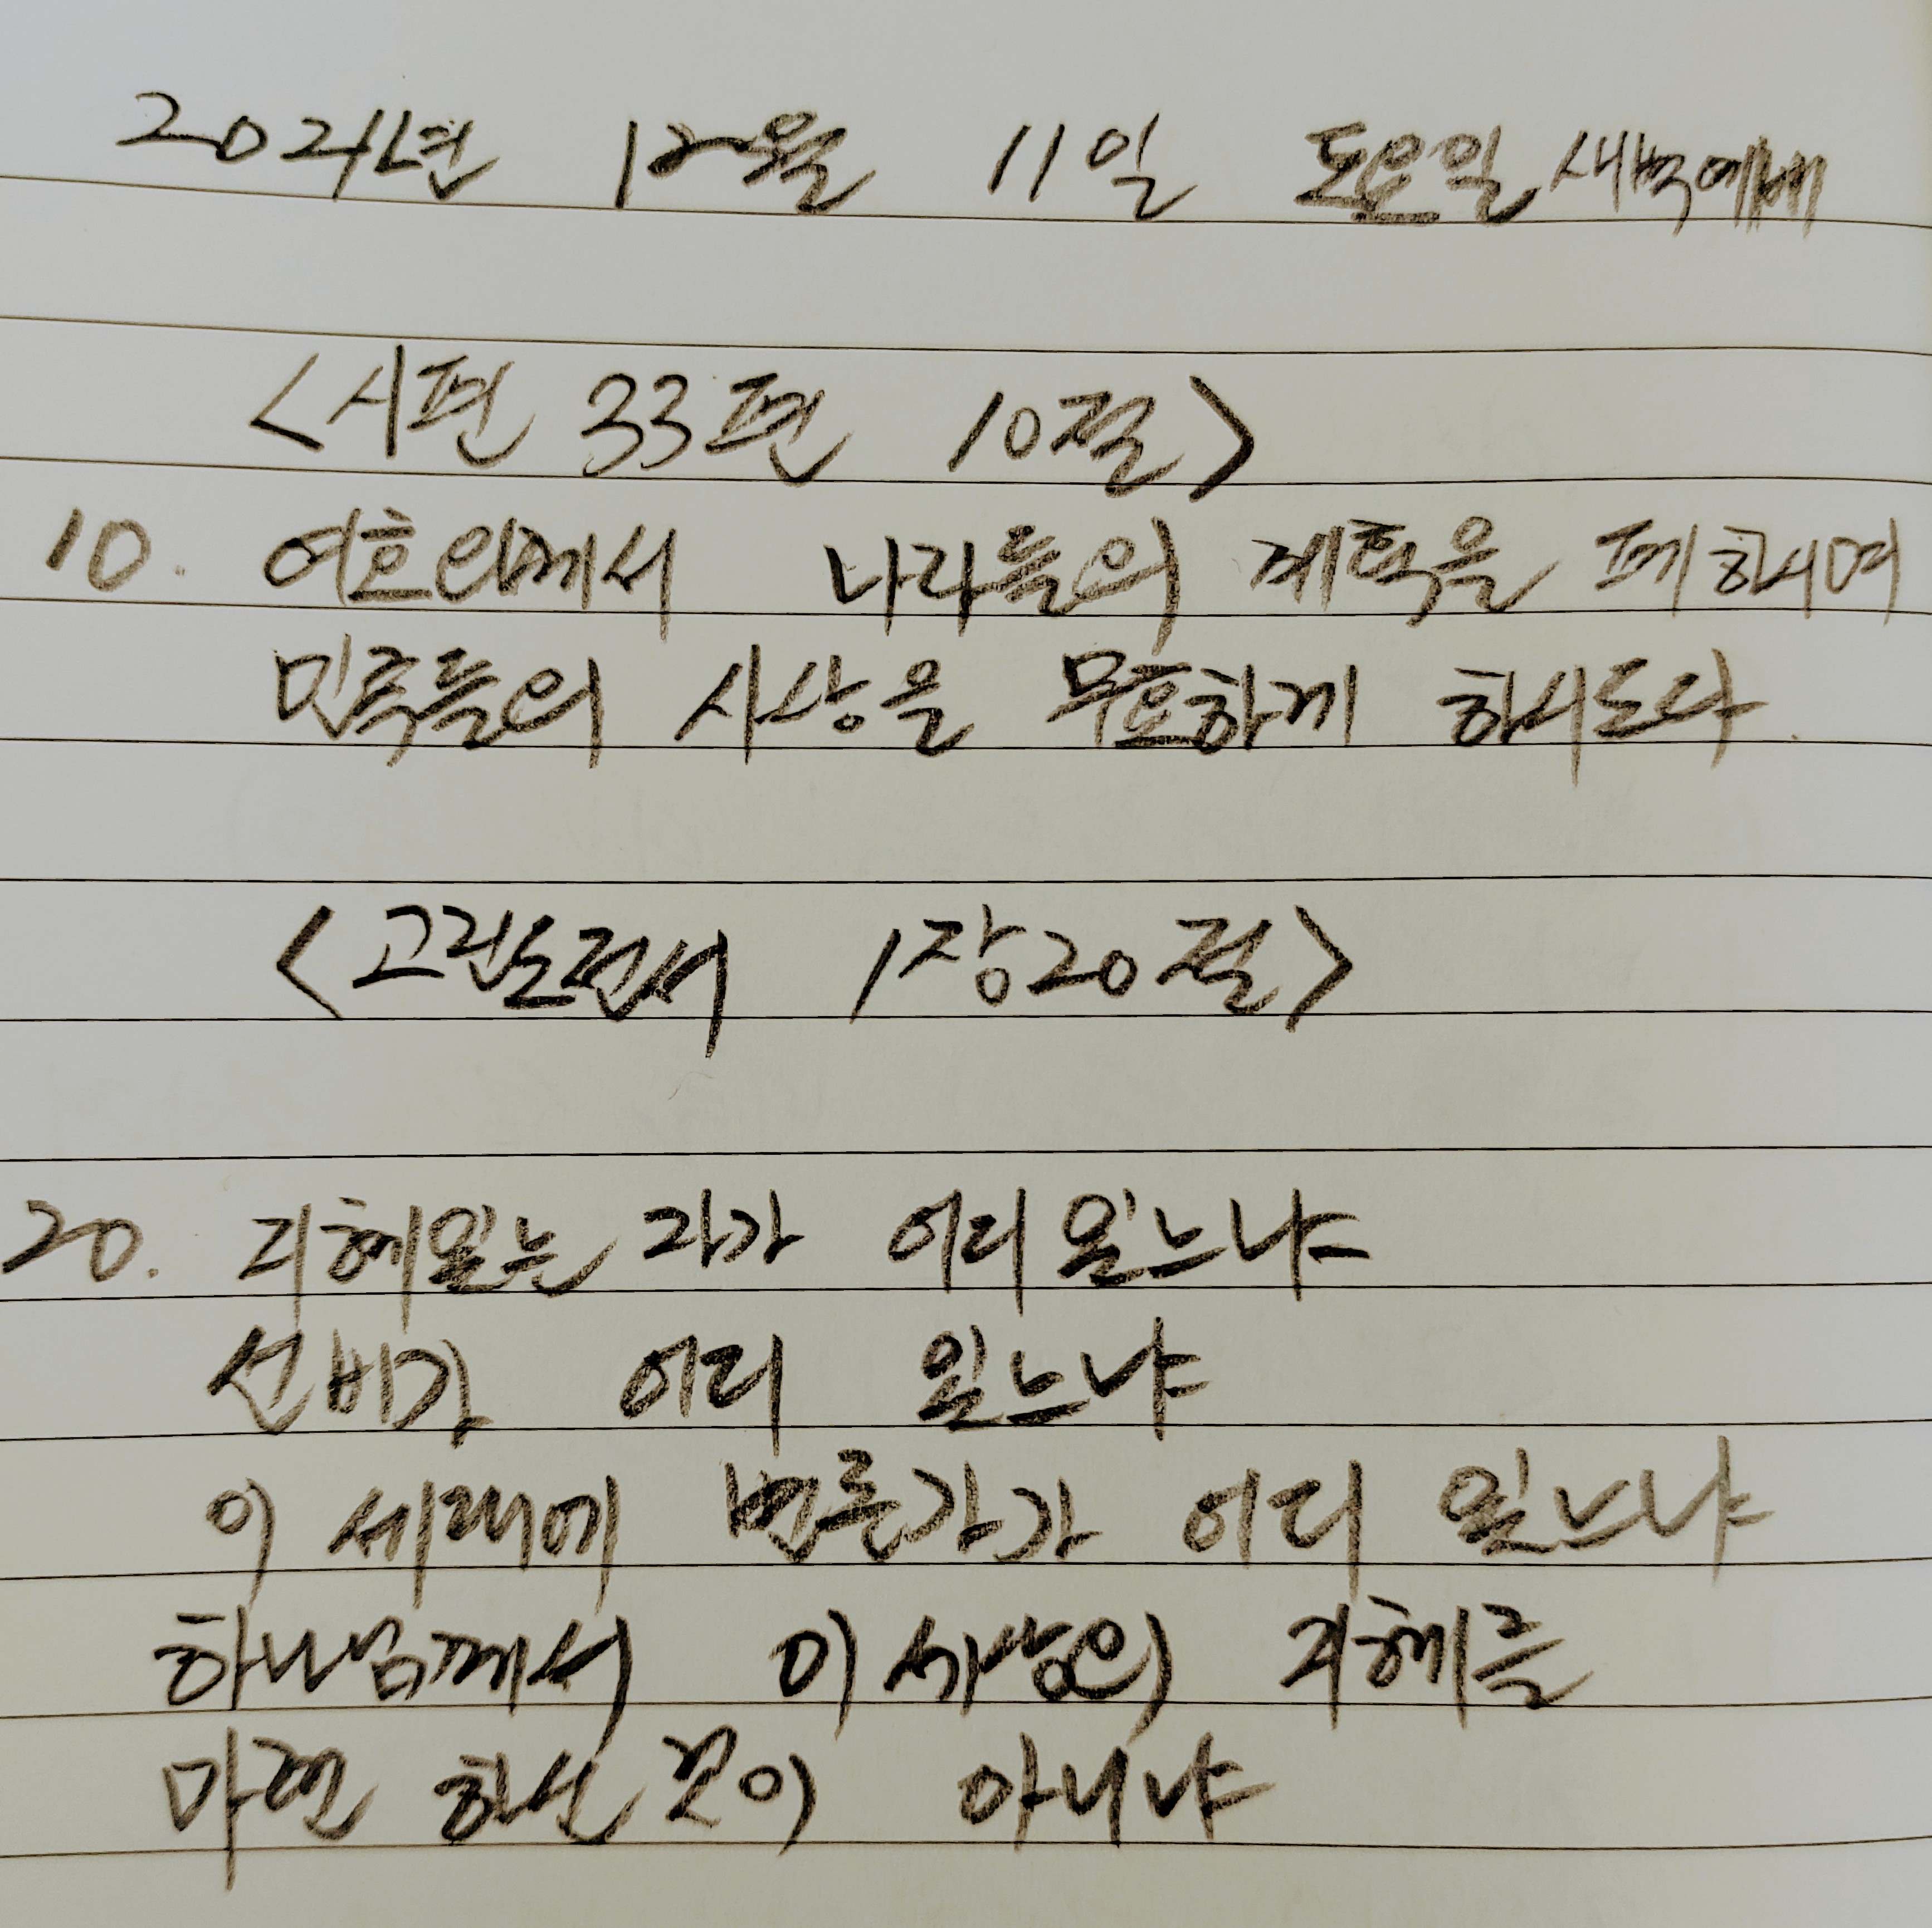 2021년 12월 11일 토요일 새벽예배
<시편 33편 10절>
10. 여호와께서 나라들의 계획을 폐하시며
민족들의 사상을 무효하게 하시도다
<고린도전서 1장20절>
20. 지혜있는 자가 어디 있느냐
선비가 어디 있느냐
이 세대에 변론가가 어디 있느냐
하나님께서 이 세상의 지혜를
미련 하신 것이 아니냐